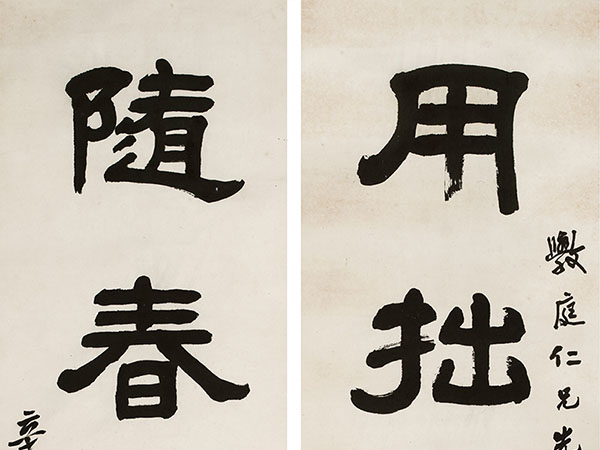 用拙
庭仁兄
隨春
辛